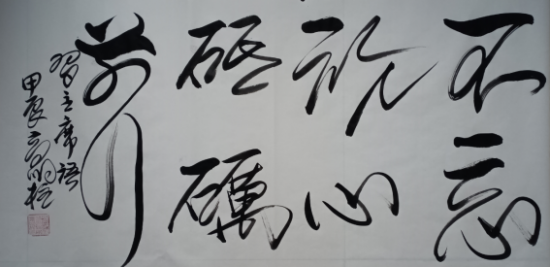 不忘
初心
砥礪
前行
習主席語
甲辰